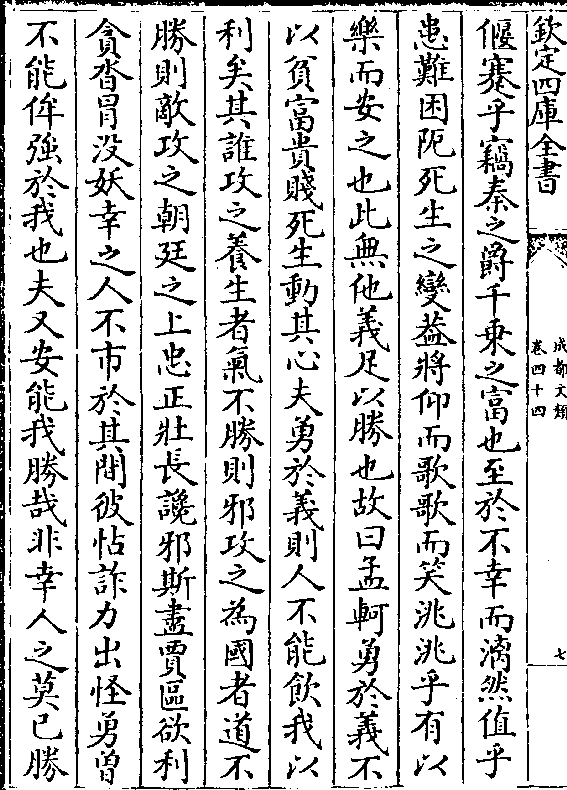 欽定四庫全書
成都文類
卷四十四
七
偃蹇乎竊秦之爵千乗之富也至於不幸而漓然值乎
患難困阨死生之變葢將仰而歌歌而笑洮洮乎有以
樂而安之也此無他義足以勝也故曰孟軻勇於義不
以貧富貴賤死生動其心夫勇於義則人不能飲我以
利矣其誰攻之養生者氣不勝則邪攻之為國者道不
勝則敵攻之朝廷之上忠正壯長讒邪斯盡賈區欲利
貪沓冒没妖幸之人不市於其間彼怙詐力出怪勇曽
不能侔強於我也夫又安能我勝哉非幸人之莫已勝